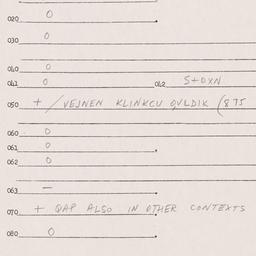 020 0
030 0
040 0
041 0 042 S+DXN
050 + / VEJNEN KLINKCU QVLDIK (875
060 0
061 0
062 0
063 —
070 + QAP ALSO IN OTHER CONTEXTS
080 0